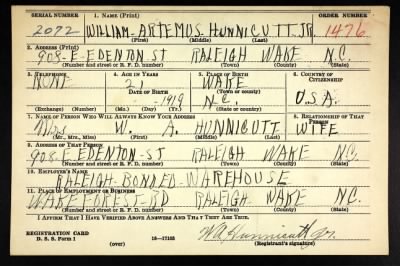 SERIAL NUMBER 1. NAME (Print) ORDER NUMBER
2072 WILLIAM-ARTEMOS HUNNICUTT. JR. 1476
(First) (Middle) (Last)
2. ADDRESS (Print)
908-E-EDENTON ST RALEIGH WAKE N.C.
(Number and street or R. F. D. number) (Town) (County) (State)
3. TELEPHONE 4. AGE IN YEARS 5. PLACE OF BIRTH 6. COUNTRY OF CITIZENSHIP
NONE 21 WAKE
DATE OF BIRTH (Town or county)
1919 N.C. U.S.A.
(Exchange) (Number) (Mo.) (Day) (Yr.) (State or country)
7. NAME OF PERSON WHO WILL ALWAYS KNOW YOUR ADDRESS 8. RELATIONSHIP OF THAT PERSON
Mrs W. A. HUNNICUTT WIFE
(Mr., Mrs., Miss) (First) (Middle) (Last)
9. ADDRESS OF THAT PERSON
908 E EDENTON-ST RALEIGH WAKE N.C.
(Number and street or R. F. D. number) (Town) (County) (State)
10. EMPLOYER'S NAME
RALEIGH-BONDED-WAREHOUSE
11. PLACE OF EMPLOYMENT OR BUSINESS
WAKE FOREST-RD RALEIGH WAKE N.C.
(Number and street or R. F. D. number) (Town) (County) (State)
I AFFIRM THAT I HAVE VERIFIED ABOVE ANSWERS AND THAT THEY ARE TRUE.
REGISTRATION CARD
D. S. S. Form 1 (over) 16—17105 W A Hunnicutt Jr.
(Registrant's signature)